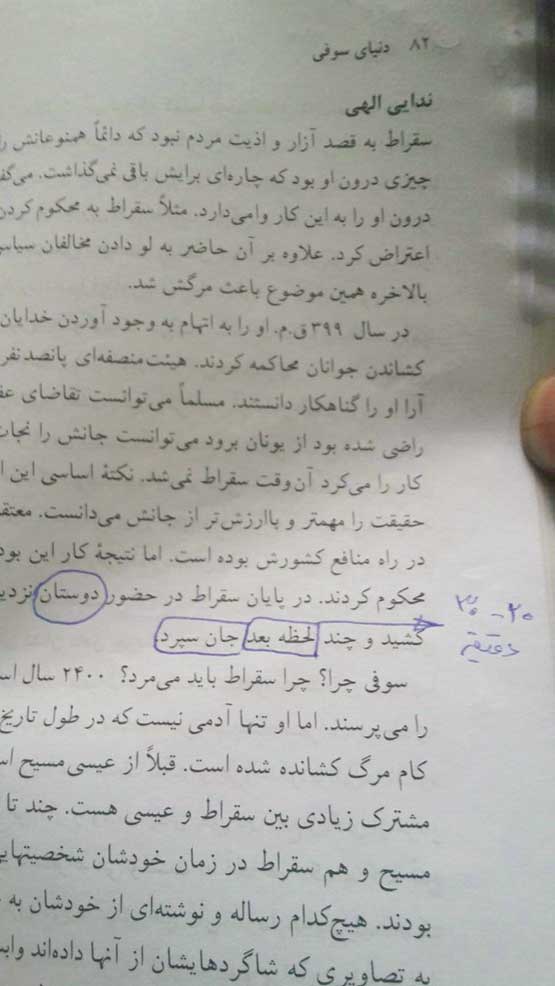 ۸۲ دنیای سوفی
ندایی الهی
سقراط به قصد آزار و اذیت مردم نبود که دائماً همنوعانش
چیزی درون او بود که چاره‌ای برایش باقی نمی‌گذاشت.
درون او را به این کار وامی‌دارد. مثلاً سقراط به محکوم کردن
اعتراض کرد. علاوه بر آن حاضر به لو دادن مخالفان
بالاخره همین موضوع باعث مرگش شد.
در سال ۳۹۹ ق.م. او را به اتهام به وجود آوردن خدایان
کشاندن جوانان محاکمه کردند. هیئت‌منصفه‌ای پانصد نفر
آرا او را گناهکار دانستند. مسلماً می‌توانست تقاضای
راضی شده بود از یونان برود می‌توانست جانش را
کار را می‌کرد آن‌وقت سقراط نمی‌شد. نکتهٔ اساسی این
حقیقت را مهمتر و باارزش‌تر از جانش می‌دانست.
در راه منافع کشورش بوده است. اما نتیجهٔ کار این بود
محکوم کردند. در پایان سقراط در حضور دوستان
کشید و چند لحظه بعد جان سپرد.
۲۰ - ۳۰
دقیقه
سوفی چرا؟ چرا سقراط باید می‌مرد؟ ۲۴۰۰ سال
را می‌پرسند. اما او تنها آدمی نیست که در طول تاریخ
کام مرگ کشانده شده است. قبلاً از عیسی مسیح
مشترک زیادی بین سقراط و عیسی هست. چند تا
مسیح و هم سقراط در زمان خودشان
بودند. هیچ‌کدام رساله و نوشته‌ای از خودشان به
به تصاویری که شاگردهایشان از آنها داده‌اند